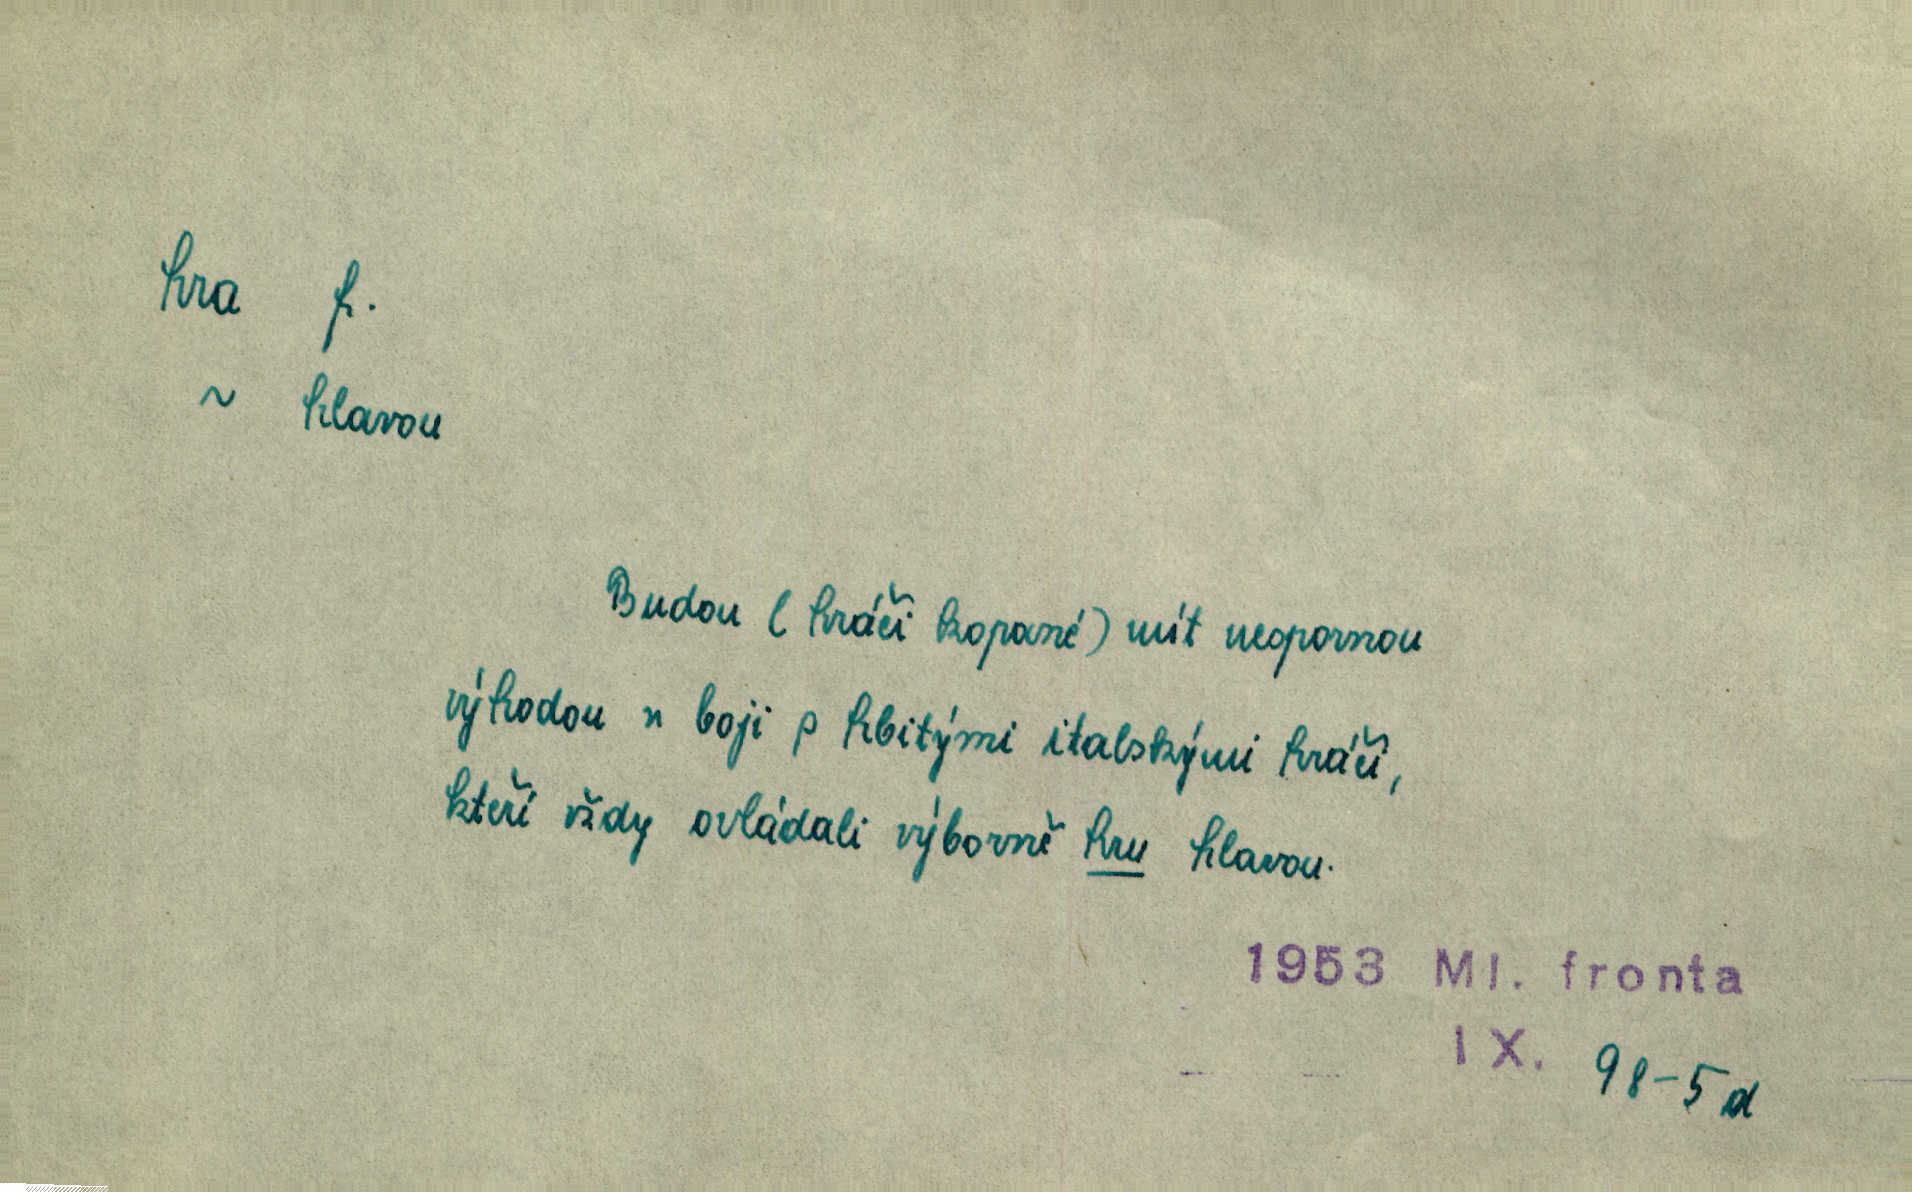 hra f.
~ hlavou
Budou (hráči kopané) mít nespornou
výhodou v boji s hbitými italskými hráči,
kteří vždy ovládali výborně hru hlavou.
1953 Ml. fronta
IX. 98-5d